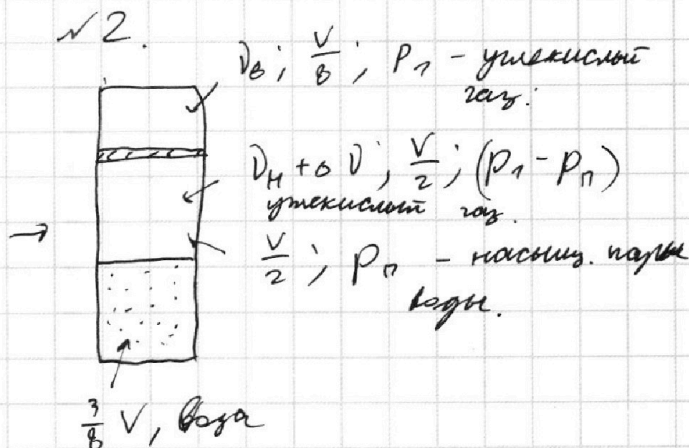 №2.
νв; V/8; P₁ - углекислый
газ.
νн + Δν; V/2; (P₁ - Pп)
углекислый газ.
V/2; Pп - насыщ. пары
воды.
3/8 V, вода